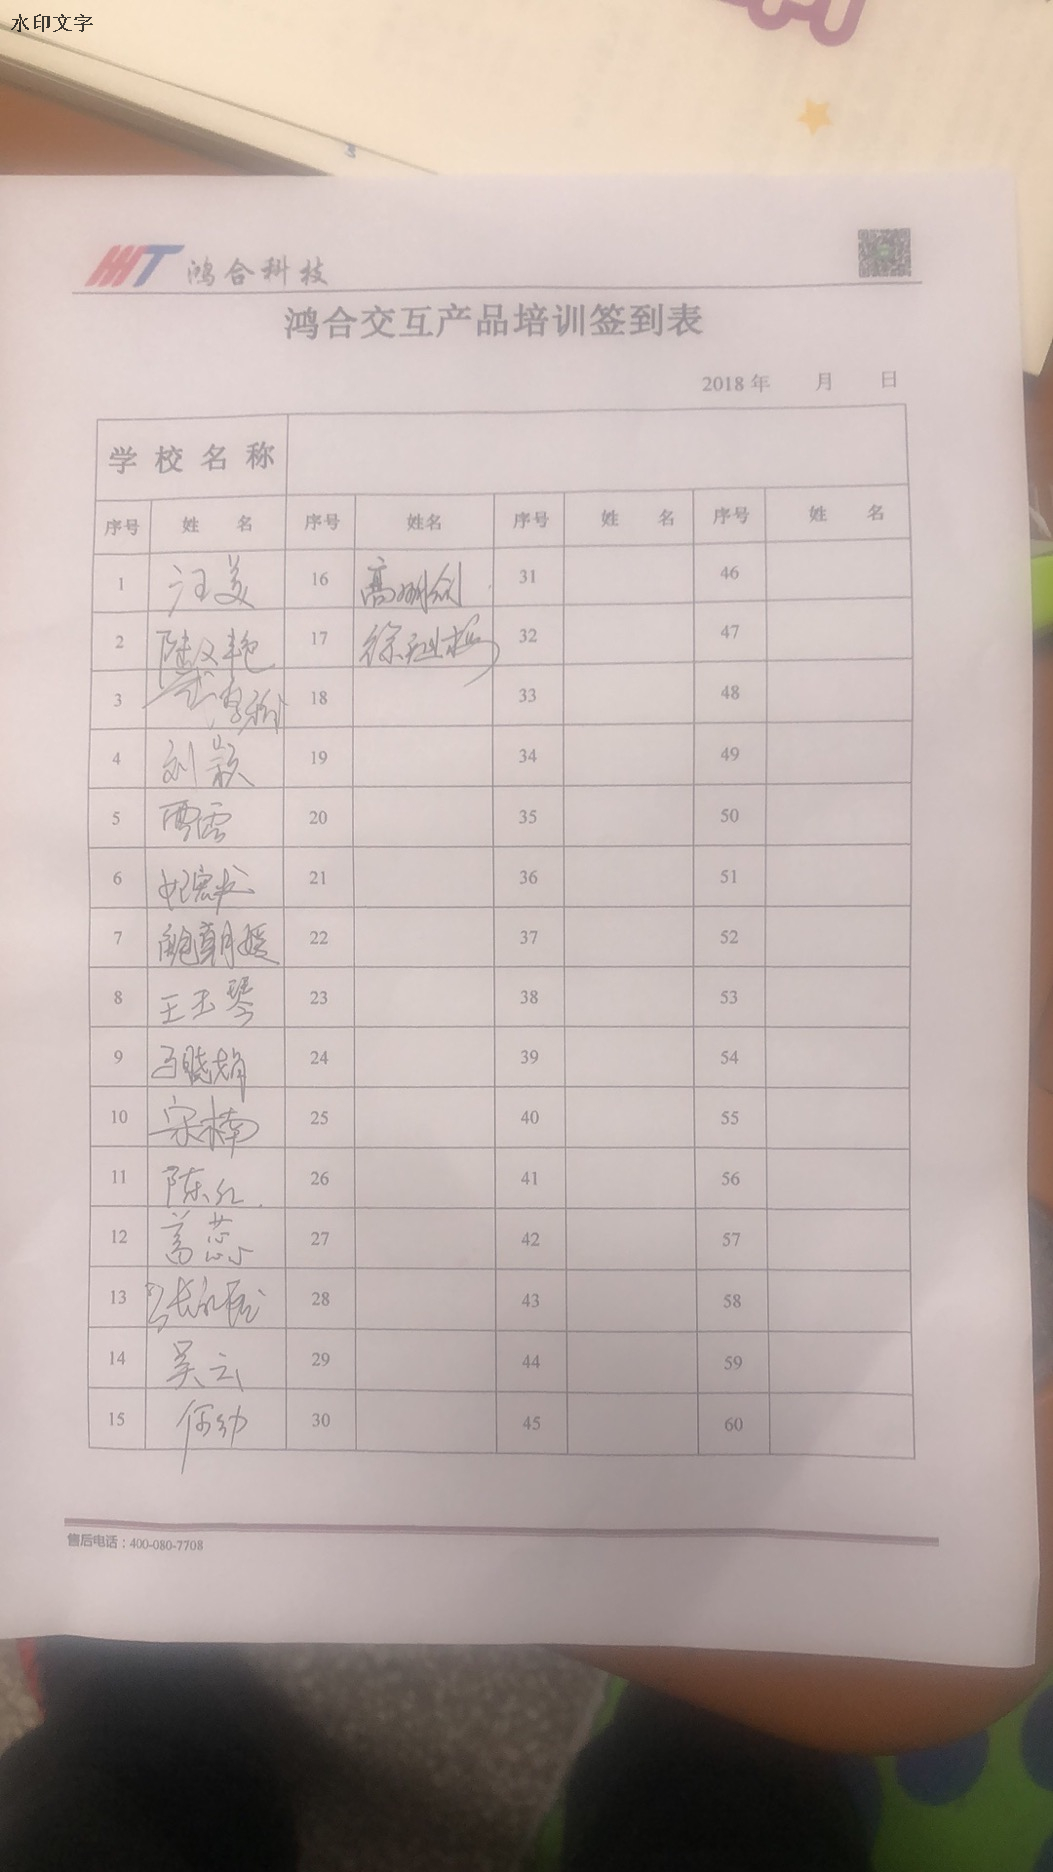 水印文字
HHT 鸿合科技
鸿合交互产品培训签到表
2018 年 月 日
学 校 名 称
序号 姓 名 序号 姓名 序号 姓 名 序号 姓 名
1 汪美 16 高 31 46
2 陆艳 17 徐 32 47
3 18 33 48
4 刘颖 19 34 49
5 20 35 50
6 21 36 51
7 鲍朝媛 22 37 52
8 王玉琴 23 38 53
9 马晓娟 24 39 54
10 宋楠 25 40 55
11 陈红 26 41 56
12 葛蕊 27 42 57
13 张 28 43 58
14 吴云 29 44 59
15 何幼 30 45 60
售后电话：400-080-7708